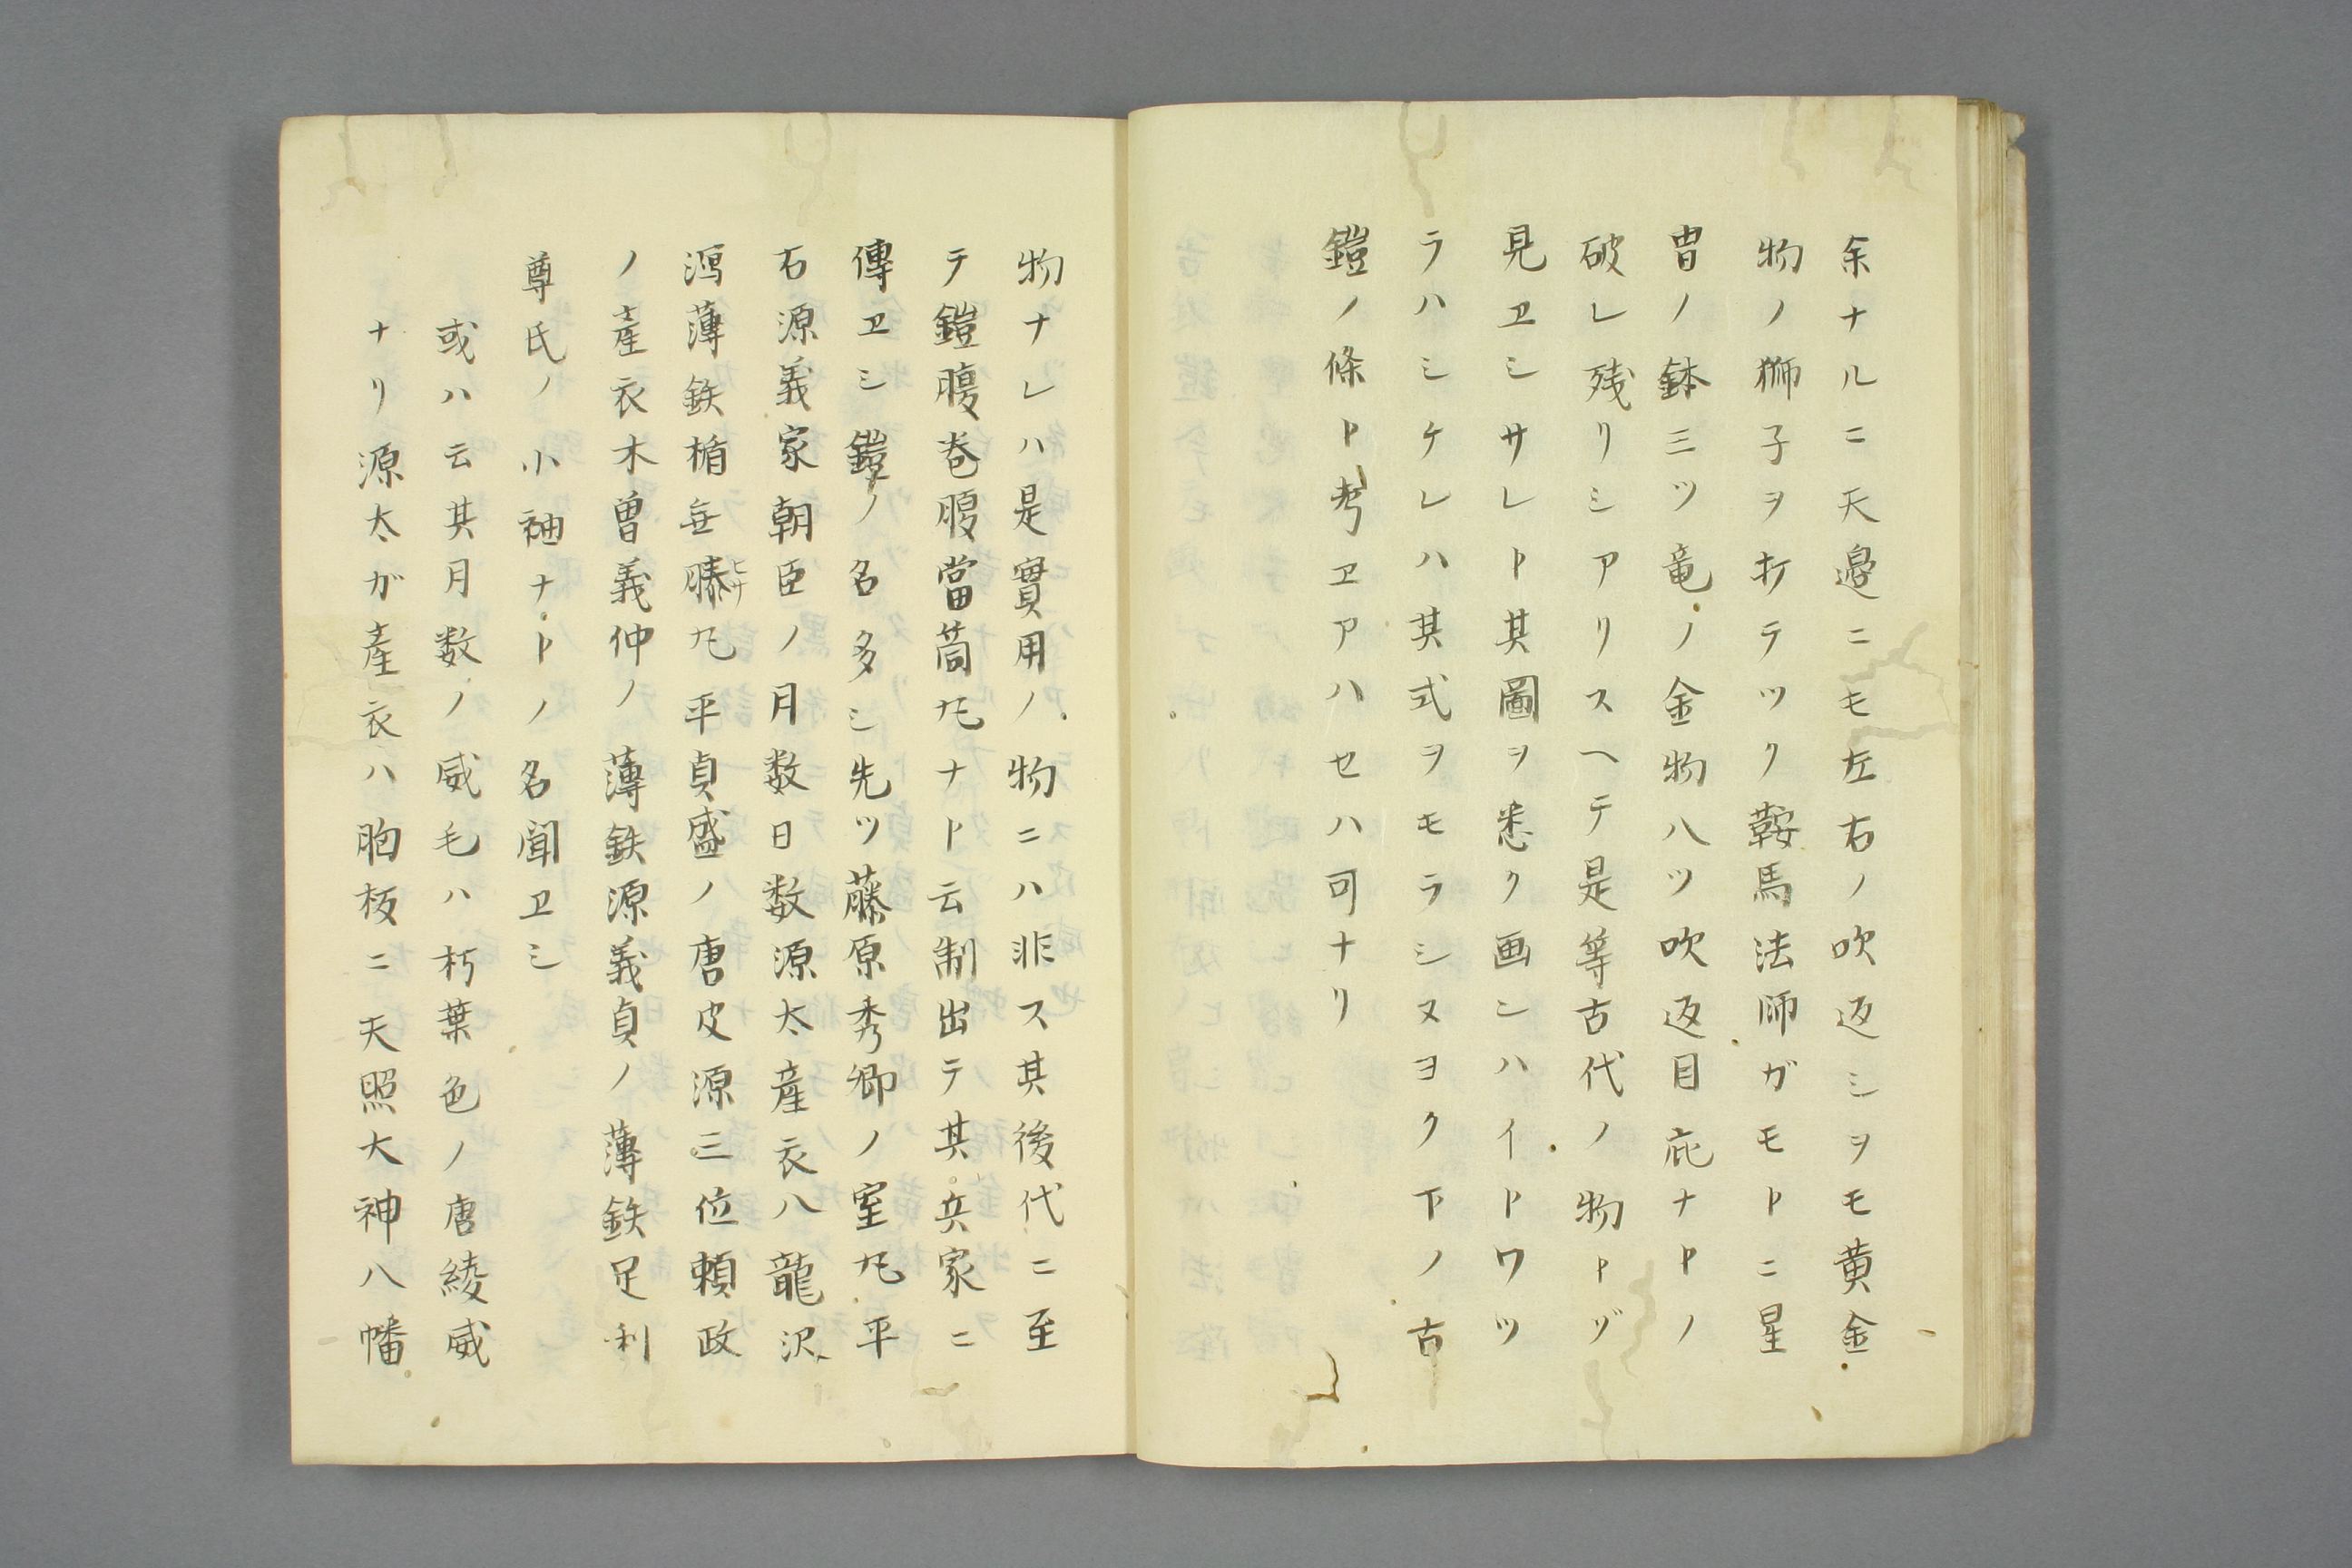 余ナルニ天邉ニモ左右ノ吹返シヲモ黄金
物ノ獅子ヲ打テツク鞍馬法師ガモトニ星
冑ノ鉢三ツ竜ノ金物八ツ吹返目庇ナトノ
破レ残リシアリスヘテ是等古代ノ物トヅ
見ヱシサレト其圖ヲ悉ク画シハイトワツ
ラハシケレハ其式ヲモラシヌヨク下ノ古
鎧ノ條ト考ヱアハセハ可ナリ
物ナレハ是實用ノ物ニハ非ス其後代ニ至
テ鎧腹巻腹當筒丸ナト云制出テ其兵家ニ
傳ヱシ鎧ノ名多シ先ツ藤原秀郷ノ室丸平
石源義家朝臣ノ月数日数源太産衣八龍沢
瀉薄鉄楯無膝丸平貞盛ノ唐皮源三位頼政
ヒサ
ノ産衣木曽義仲ノ薄鉄源義貞ノ薄鉄足利
尊氏ノ小袖ナトノ名聞ヱシ
或ハ云其月数ノ威毛ハ朽葉色ノ唐綾威
ナリ源太ガ産衣ハ胸板ニ天照大神八幡